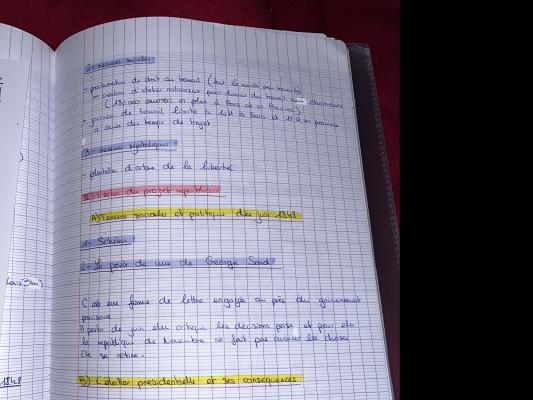 2- mesures sociales
- proclamation du droit au travail (tout le monde peut travailler)
création d'atelier nationaux pour donner du travail aux chômeurs
( ouvriers en plus à Paris et en Province)
- journée de travail limité à 10H à Paris et 11H en province
à cause du temps de trajet
3- mesures symboliques
- plantation d'arbre de la liberté
II) L'échec du projet républicain
A) Tensions sociales et politique dès juin 1848
1- Schéma
2- Le point de vue de George Sand
C'est une femme de lettre engagée au près du gouvernement
provisoire.
A partir de juin elle critique les décisions prise et pour elle
la république de Novembre ne fait pas avancer les choses
Elle se retire.
B) L'élection présidentielle et ses conséquences
Louis Blanc)
1848